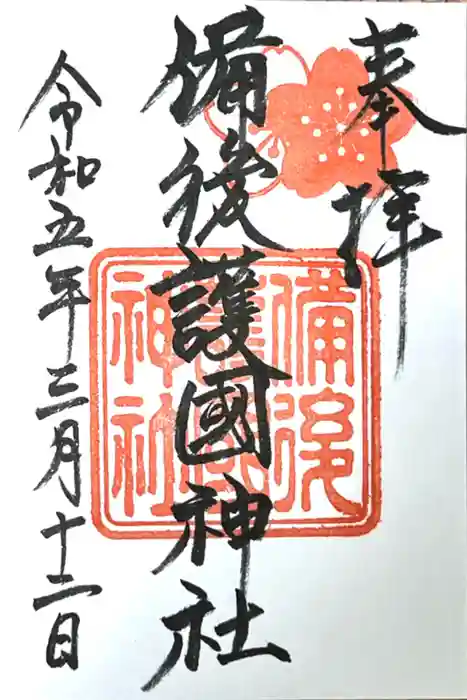 奉拝
備後護國神社
備後
護國
神社
令和五年三月十二日